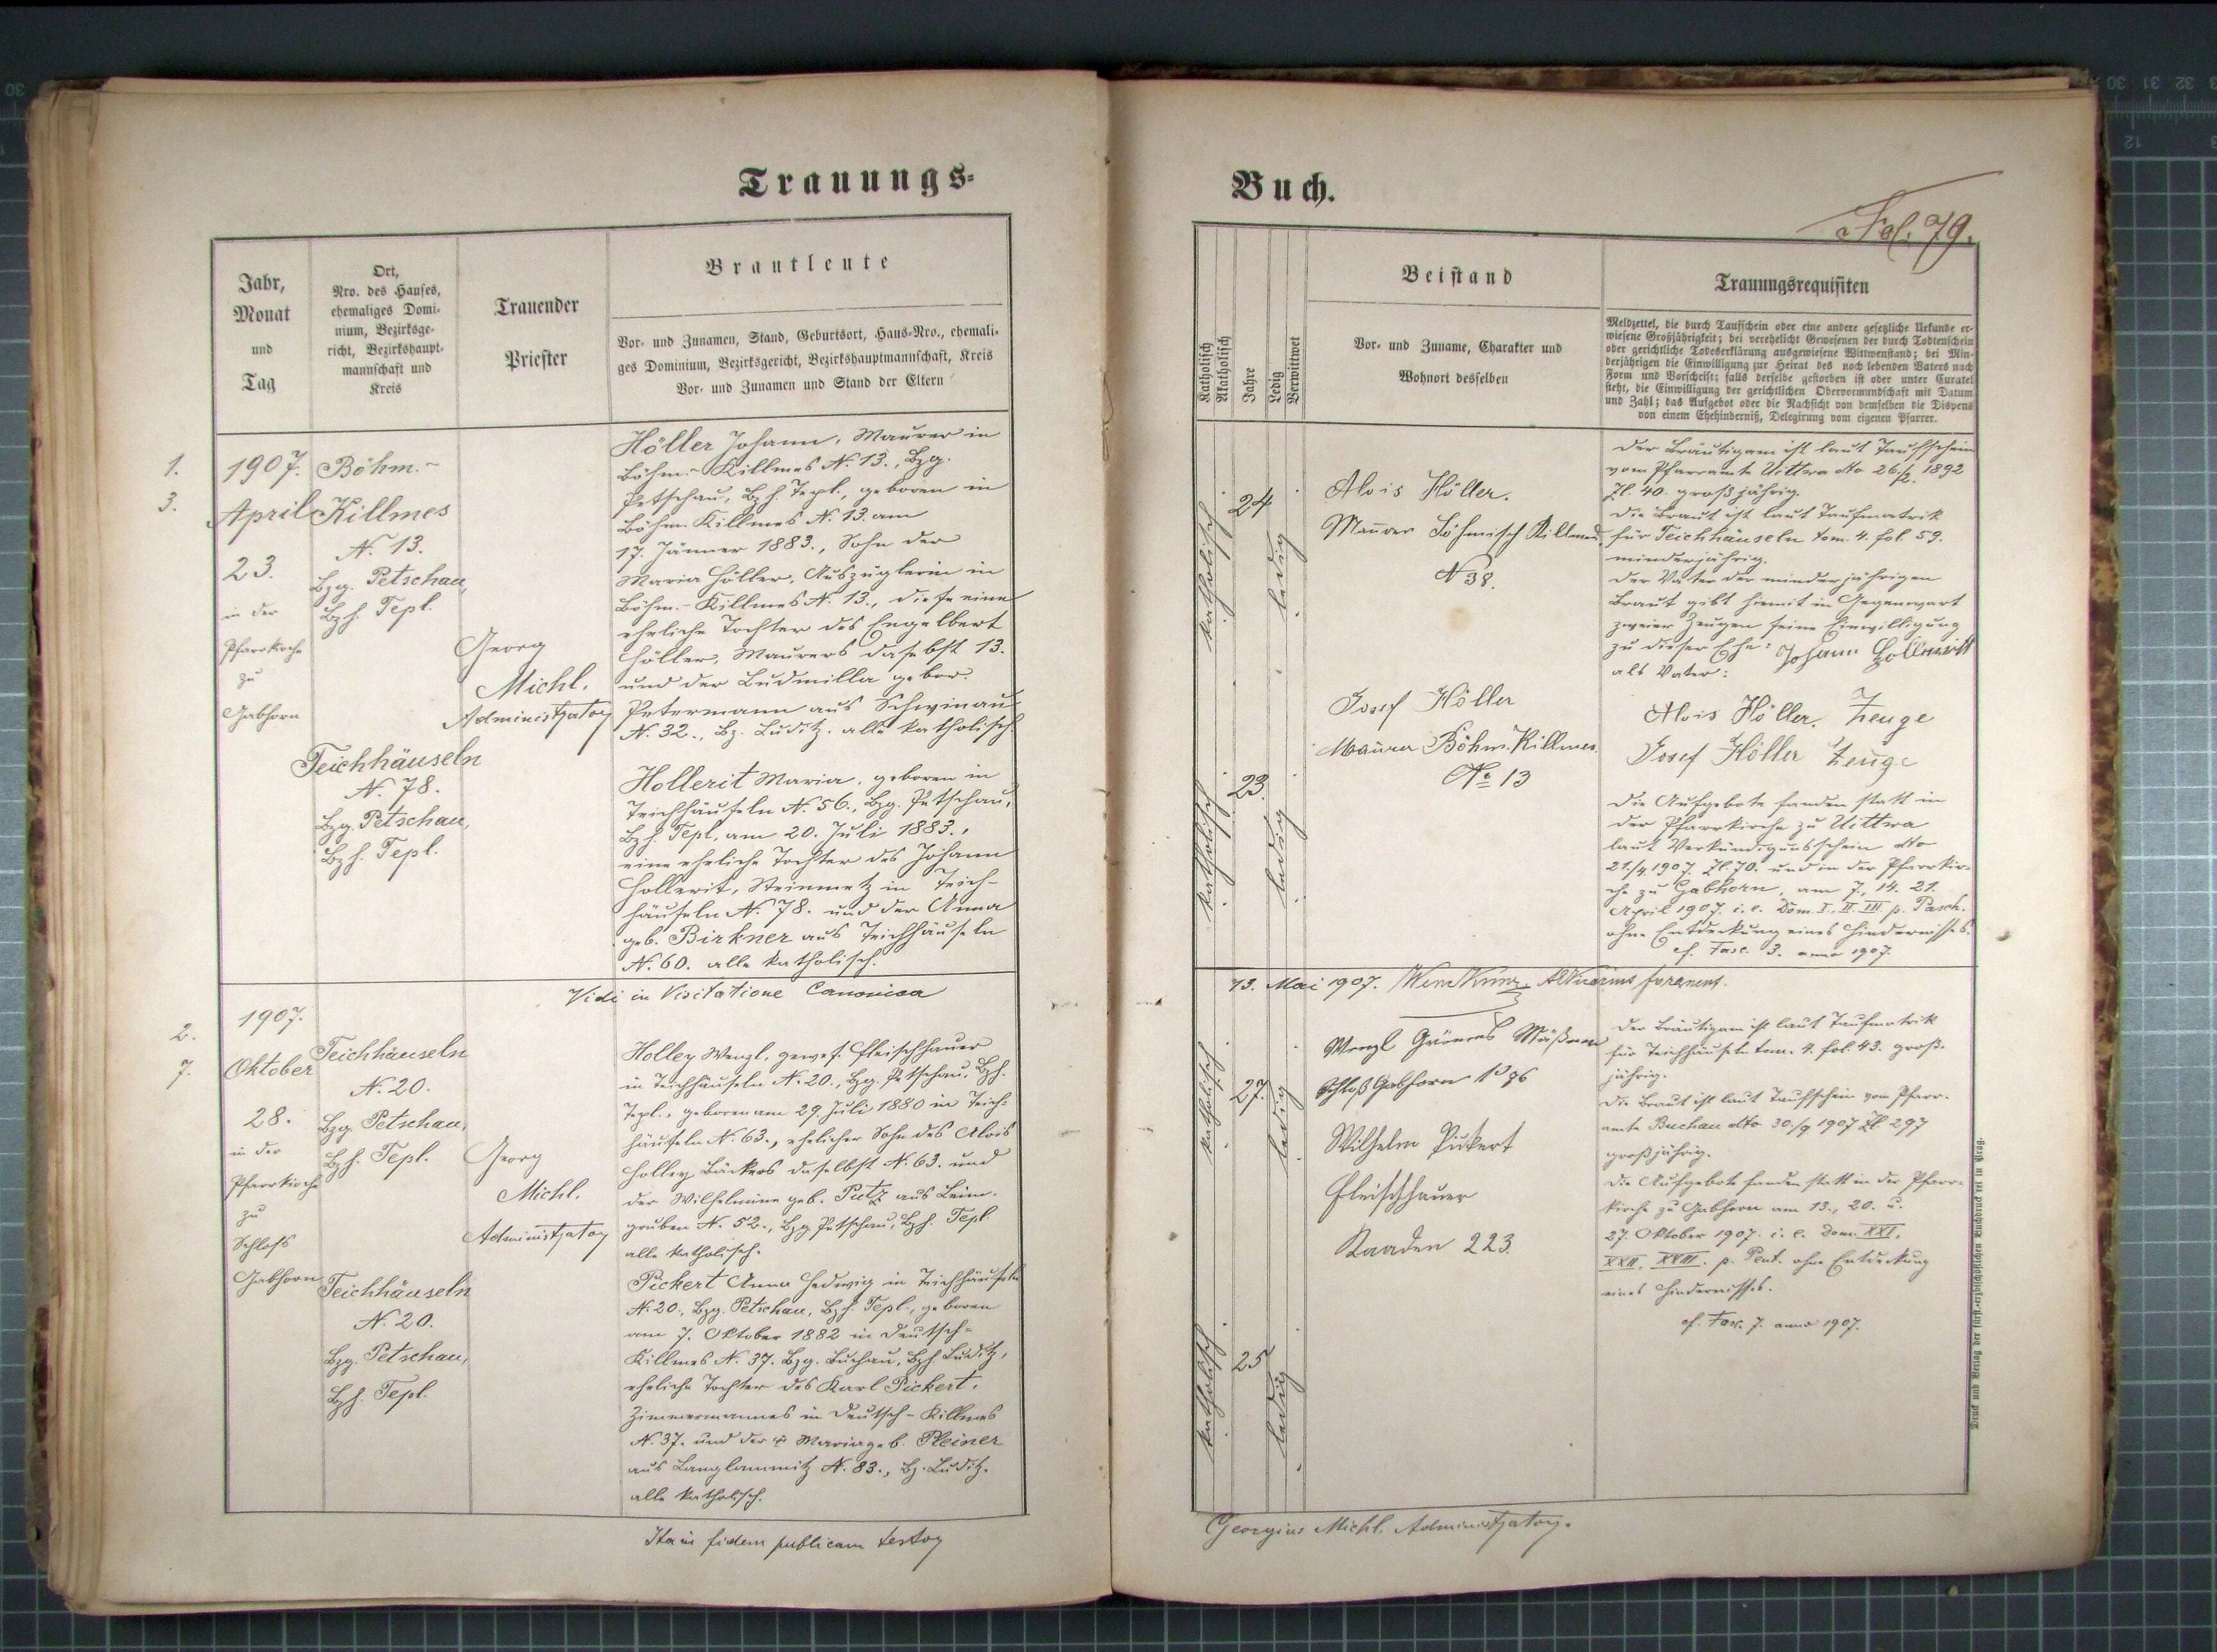 Trauungs=
Jahr,
Monat
und
Tag
Ort,
Nro. des Hauses,
ehemaliges Domi-
nium, Bezirksge-
richt, Bezirkshaupt-
mannschaft und
Kreis
Trauender
Priester
Brautleute
Vor- und Zunamen, Stand, Geburtsort, Haus-Nro., ehemali-
ges Dominium, Bezirksgericht, Bezirkshauptmannschaft, Kreis
Vor- und Zunamen und Stand der Eltern
1.
3.
1907.
April
23.
in der
Pfarrkirche
zu
Gabhorn
Böhm.-
Killmes
N. 13.
Bzg. Petschau,
Bzh. Tepl.
Teichhäuseln
N. 78.
Bzg. Petschau,
Bzh. Tepl.
Georg
Michl.
Administrator
Höller Johann, Maurer in
Böhm.-Killmes N. 13., Bzg.
Petschau, Bzh. Tepl., geboren in
Böhm. Killmes N. 13. am
17. Jänner 1883., Sohn der
Maria Höller, Auszüglerin in
Böhm.-Killmes N. 13., diese eine
eheliche Tochter des Engelbert
Höller, Maurers daselbst 13.
und der Ludmilla gebor.
Petermann aus Schwinau
N. 32., Bz. Luditz. alle katholisch.
Hollerit Maria, geboren in
Teichhäuseln N. 56., Bzg. Petschau,
Bzh. Tepl, am 20. Juli 1883.,
eine eheliche Tochter des Johann
Hollerit, Steinmetz in Teich-
häuseln N. 78. und der Anna
geb. Birkner aus Teichhäuseln
N. 60. alle katholisch.
Vidi in Visitatione Canonica
2.
7.
1907.
Oktober
28.
in der
Pfarrkirche
zu
Schloß
Gabhorn
Teichhäuseln
N. 20.
Bzg. Petschau,
Bzh. Tepl.
Teichhäuseln
N. 20.
Bzg. Petschau,
Bzh. Tepl.
Georg
Michl.
Administrator
Holley Wenzl, gewes. Fleischhauer
in Teichhäuseln N. 20., Bzg. Petschau, Bzh.
Tepl., geboren am 29. Juli 1880 in Teich-
häuseln N. 63., ehelicher Sohn des Alois
Holley, Bäckers daselbst N. 63. und
der Wilhelmine geb. Putz aus Leim-
gruben N. 52., Bzg Petschau, Bzh. Tepl
alle katholisch.
Pickert Anna Hedwig in Teichhäuseln
N. 20., Bzg. Petschau, Bzh. Tepl., geboren
am 7. Oktober 1882 in Deutsch-
Killmes N. 37. Bzg. Buchau, Bzh Luditz,
eheliche Tochter des Karl Pickert,
Zimmermannes in Deutsch-Killmes
N. 37. und der Maria geb. Pleiner
aus Langlammitz N. 83., Bz. Luditz.
alle katholisch.
Ita in fidem publicam testor
Buch.
Fol. 79.
Katholisch
Akatholisch
Jahre
Ledig
Verwittwet
Beistand
Vor- und Zuname, Charakter und
Wohnort desselben
Trauungsrequisiten
Meldzettel, die durch Taufschein oder eine andere gesetzliche Urkunde er-
wiesene Großjährigkeit; bei verehelicht Gewesenen der durch Todtenschein
oder gerichtliche Todeserklärung ausgewiesene Wittwenstand; bei Min-
derjährigen die Einwilligung zur Heirat des noch lebenden Vaters nach
Form und Vorschrift; falls derselbe gestorben ist oder unter Curatel
steht, die Einwilligung der gerichtlichen Obervormundschaft mit Datum
und Zahl; das Aufgebot oder die Nachsicht von demselben die Dispens
von einem Ehehinderniß, Delegirung vom eigenen Pfarrer.
katholisch
24
ledig
katholisch
23.
ledig
Alois Höller.
Maurer Böhmisch Killmes
N 38.
Josef Höller
Maurer Böhm. Killmes
No 13
Der Bräutigam ist laut Taufschein
vom Pfarramte Uittwa dto 26./2. 1892
Zl. 40. großjährig.
Die Braut ist laut Taufmatrik
für Teichhäuseln tom. 4. fol. 59.
minderjährig.
Der Vater der minderjährigen
Braut gibt hiemit in Gegenwart
zweier Zeugen seine Einwilligung
zu dieser Ehe: Johann Hollerit
als Vater:
Alois Höller. Zeuge
Josef Höller Zeuge
Die Aufgebote fanden statt in
der Pfarrkirche zu Uittwa
laut Verkündigunsschein dto
21./4. 1907. Zl 70. und in der Pfarrkir-
che zu Gabhorn, am 7., 14. 21.
April 1907. i. e. Dom. I. II. III p. Pasch.
ohne Entdeckung eines Hindernisses.
cf. Fasc. 3. anno 1907.
13. Mai 1907.
katholisch
27.
ledig
katholisch
25
ledig
Schloß Gabhorn No 76
Wilhelm Pickert
Fleischhauer
Kaaden 223.
Der Bräutigam ist laut Taufmatrik
für Teichhäuseln tom. 4. fol. 43. groß-
jährig.
Die Braut ist laut Taufschein vom Pfarr-
amte Buchau dto 30./9 1907 Zl 297
großjährig.
Die Aufgebote fanden statt in der Pfarr-
kirche zu Gabhorn am 13., 20. u.
27. Oktober 1907. i. e. Dom. XXI,
XXII, XXIII. p. Pent. ohne Entdeckung
eines Hindernisses.
cf. Fasc. 7. anno 1907.
Georgius Michl. Administrator.
Druck und Verlag der fürst-erzbischöflichen Buchdruckerei in Prag.